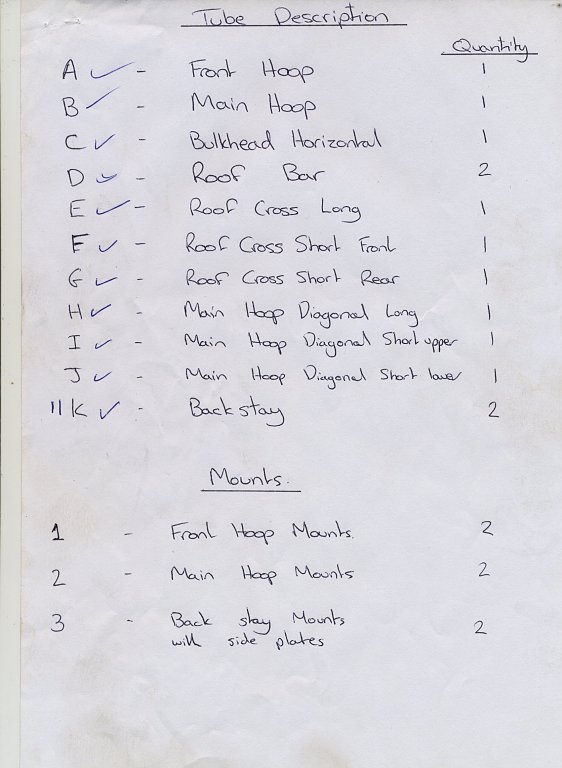 Tube Description
Quantity
A ✓ - Front Hoop 1
B ✓ - Main Hoop 1
C ✓ - Bulkhead Horizontal 1
D ✓ - Roof Bar 2
E ✓ - Roof Cross Long 1
F ✓ - Roof Cross Short Front 1
G ✓ - Roof Cross Short Rear 1
H ✓ - Main Hoop Diagonal Long 1
I ✓ - Main Hoop Diagonal Short upper 1
J ✓ - Main Hoop Diagonal Short lower 1
11 K ✓ - Backstay 2
Mounts.
1 - Front Hoop Mounts. 2
2 - Main Hoop Mounts 2
3 - Back stay Mounts 2
with side plates